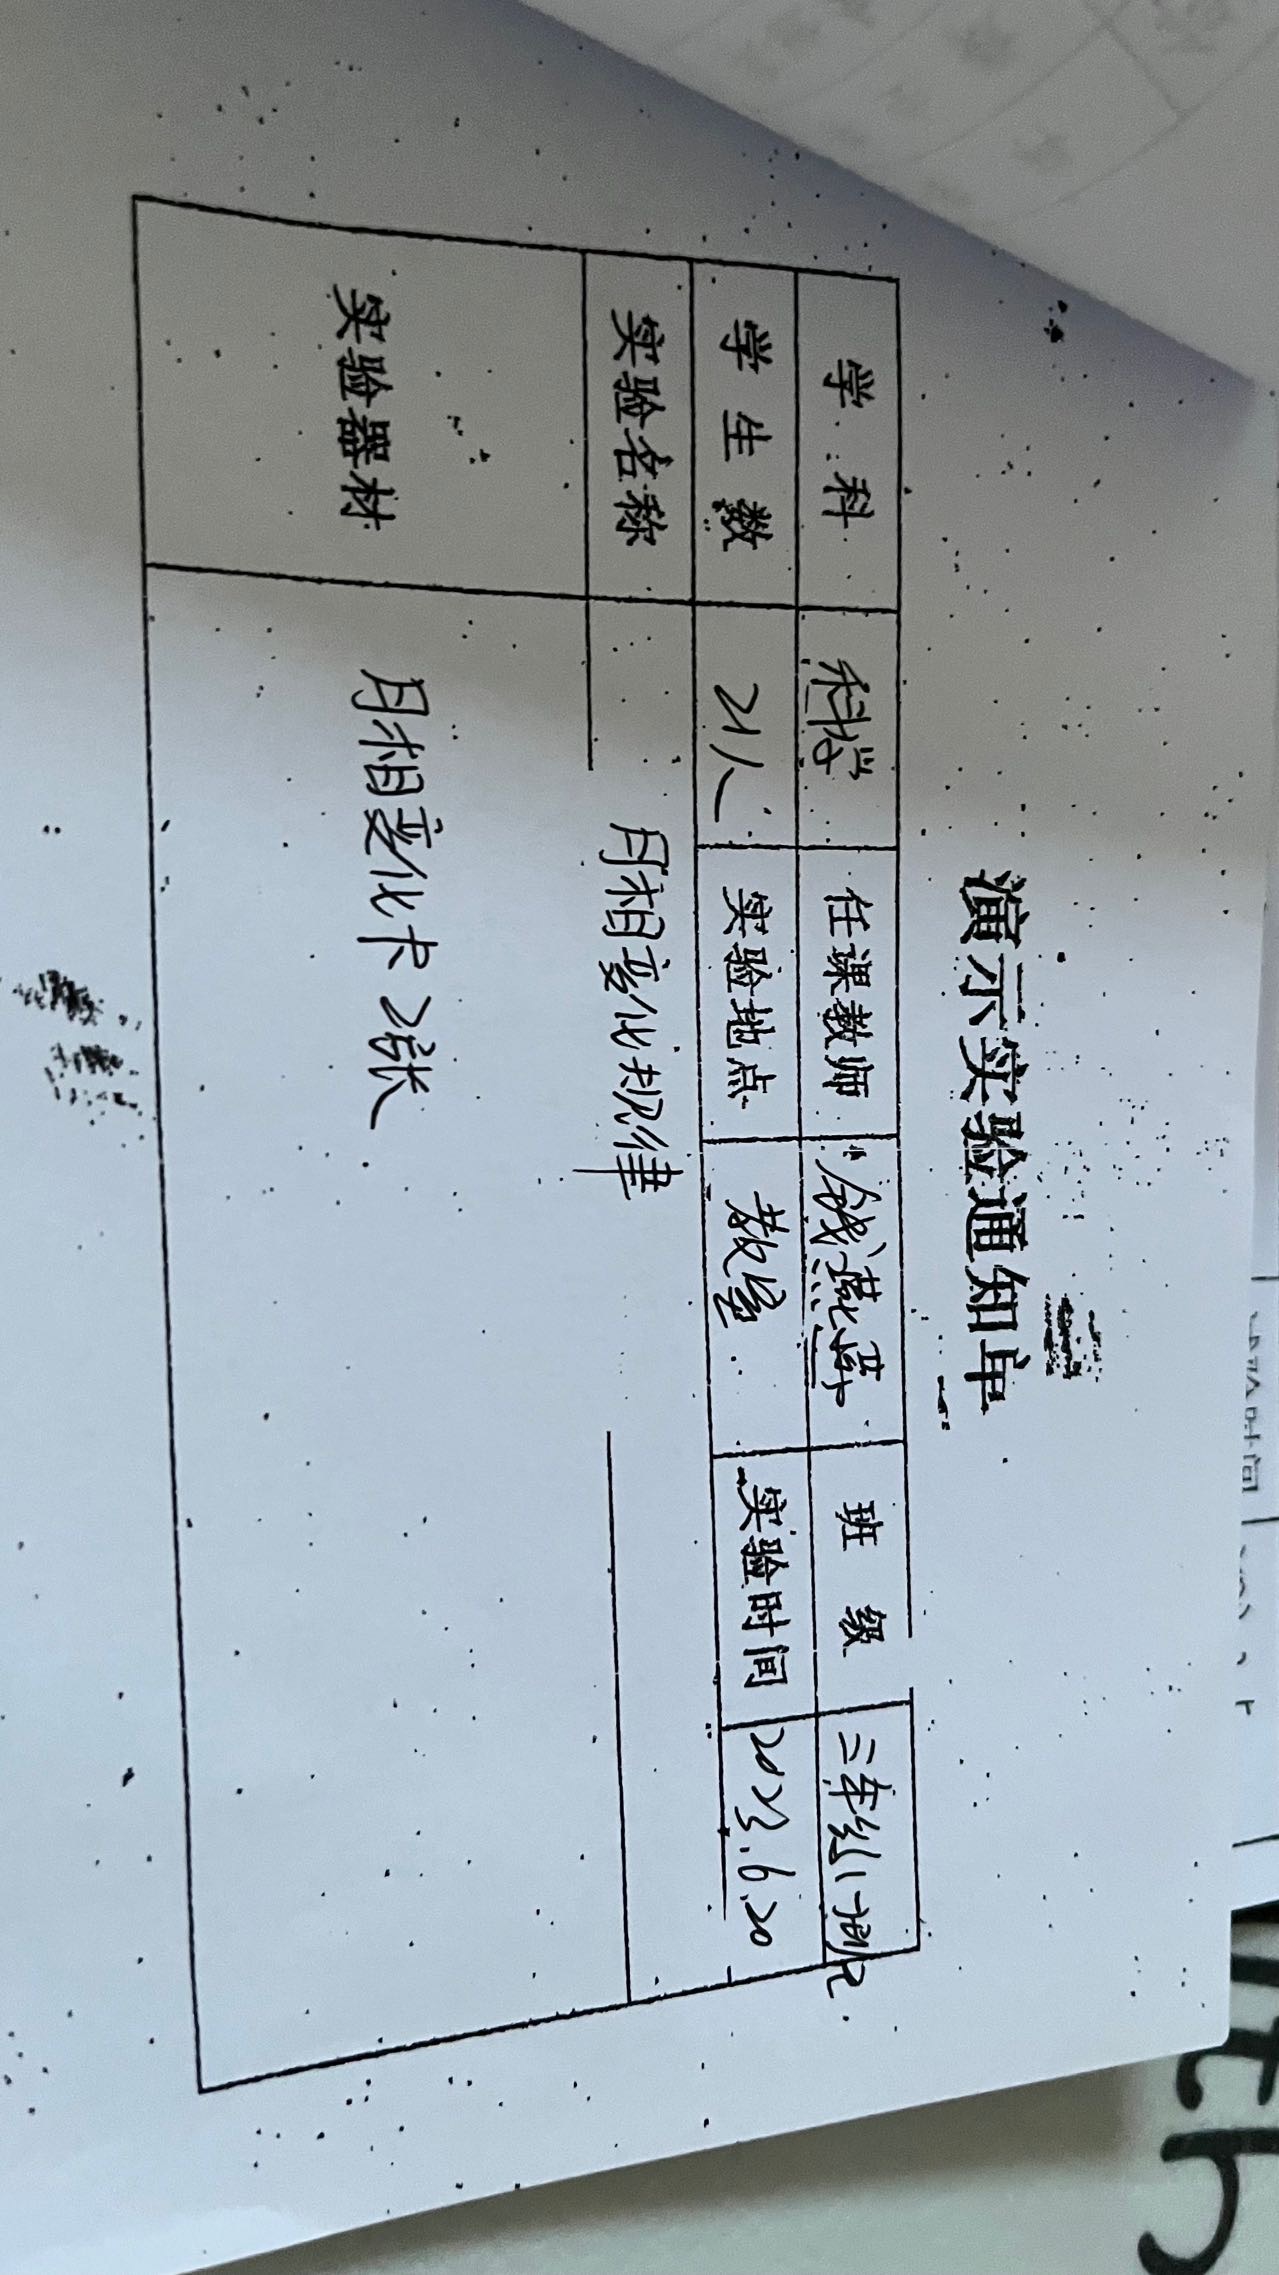 演示实验通知单
学科 科学 任课教师 钱燕萍 班级 二年级1班
学生数 21人 实验地点 教室 实验时间 2023.6.20
实验名称 月相变化规律
实验器材 月相变化卡2张